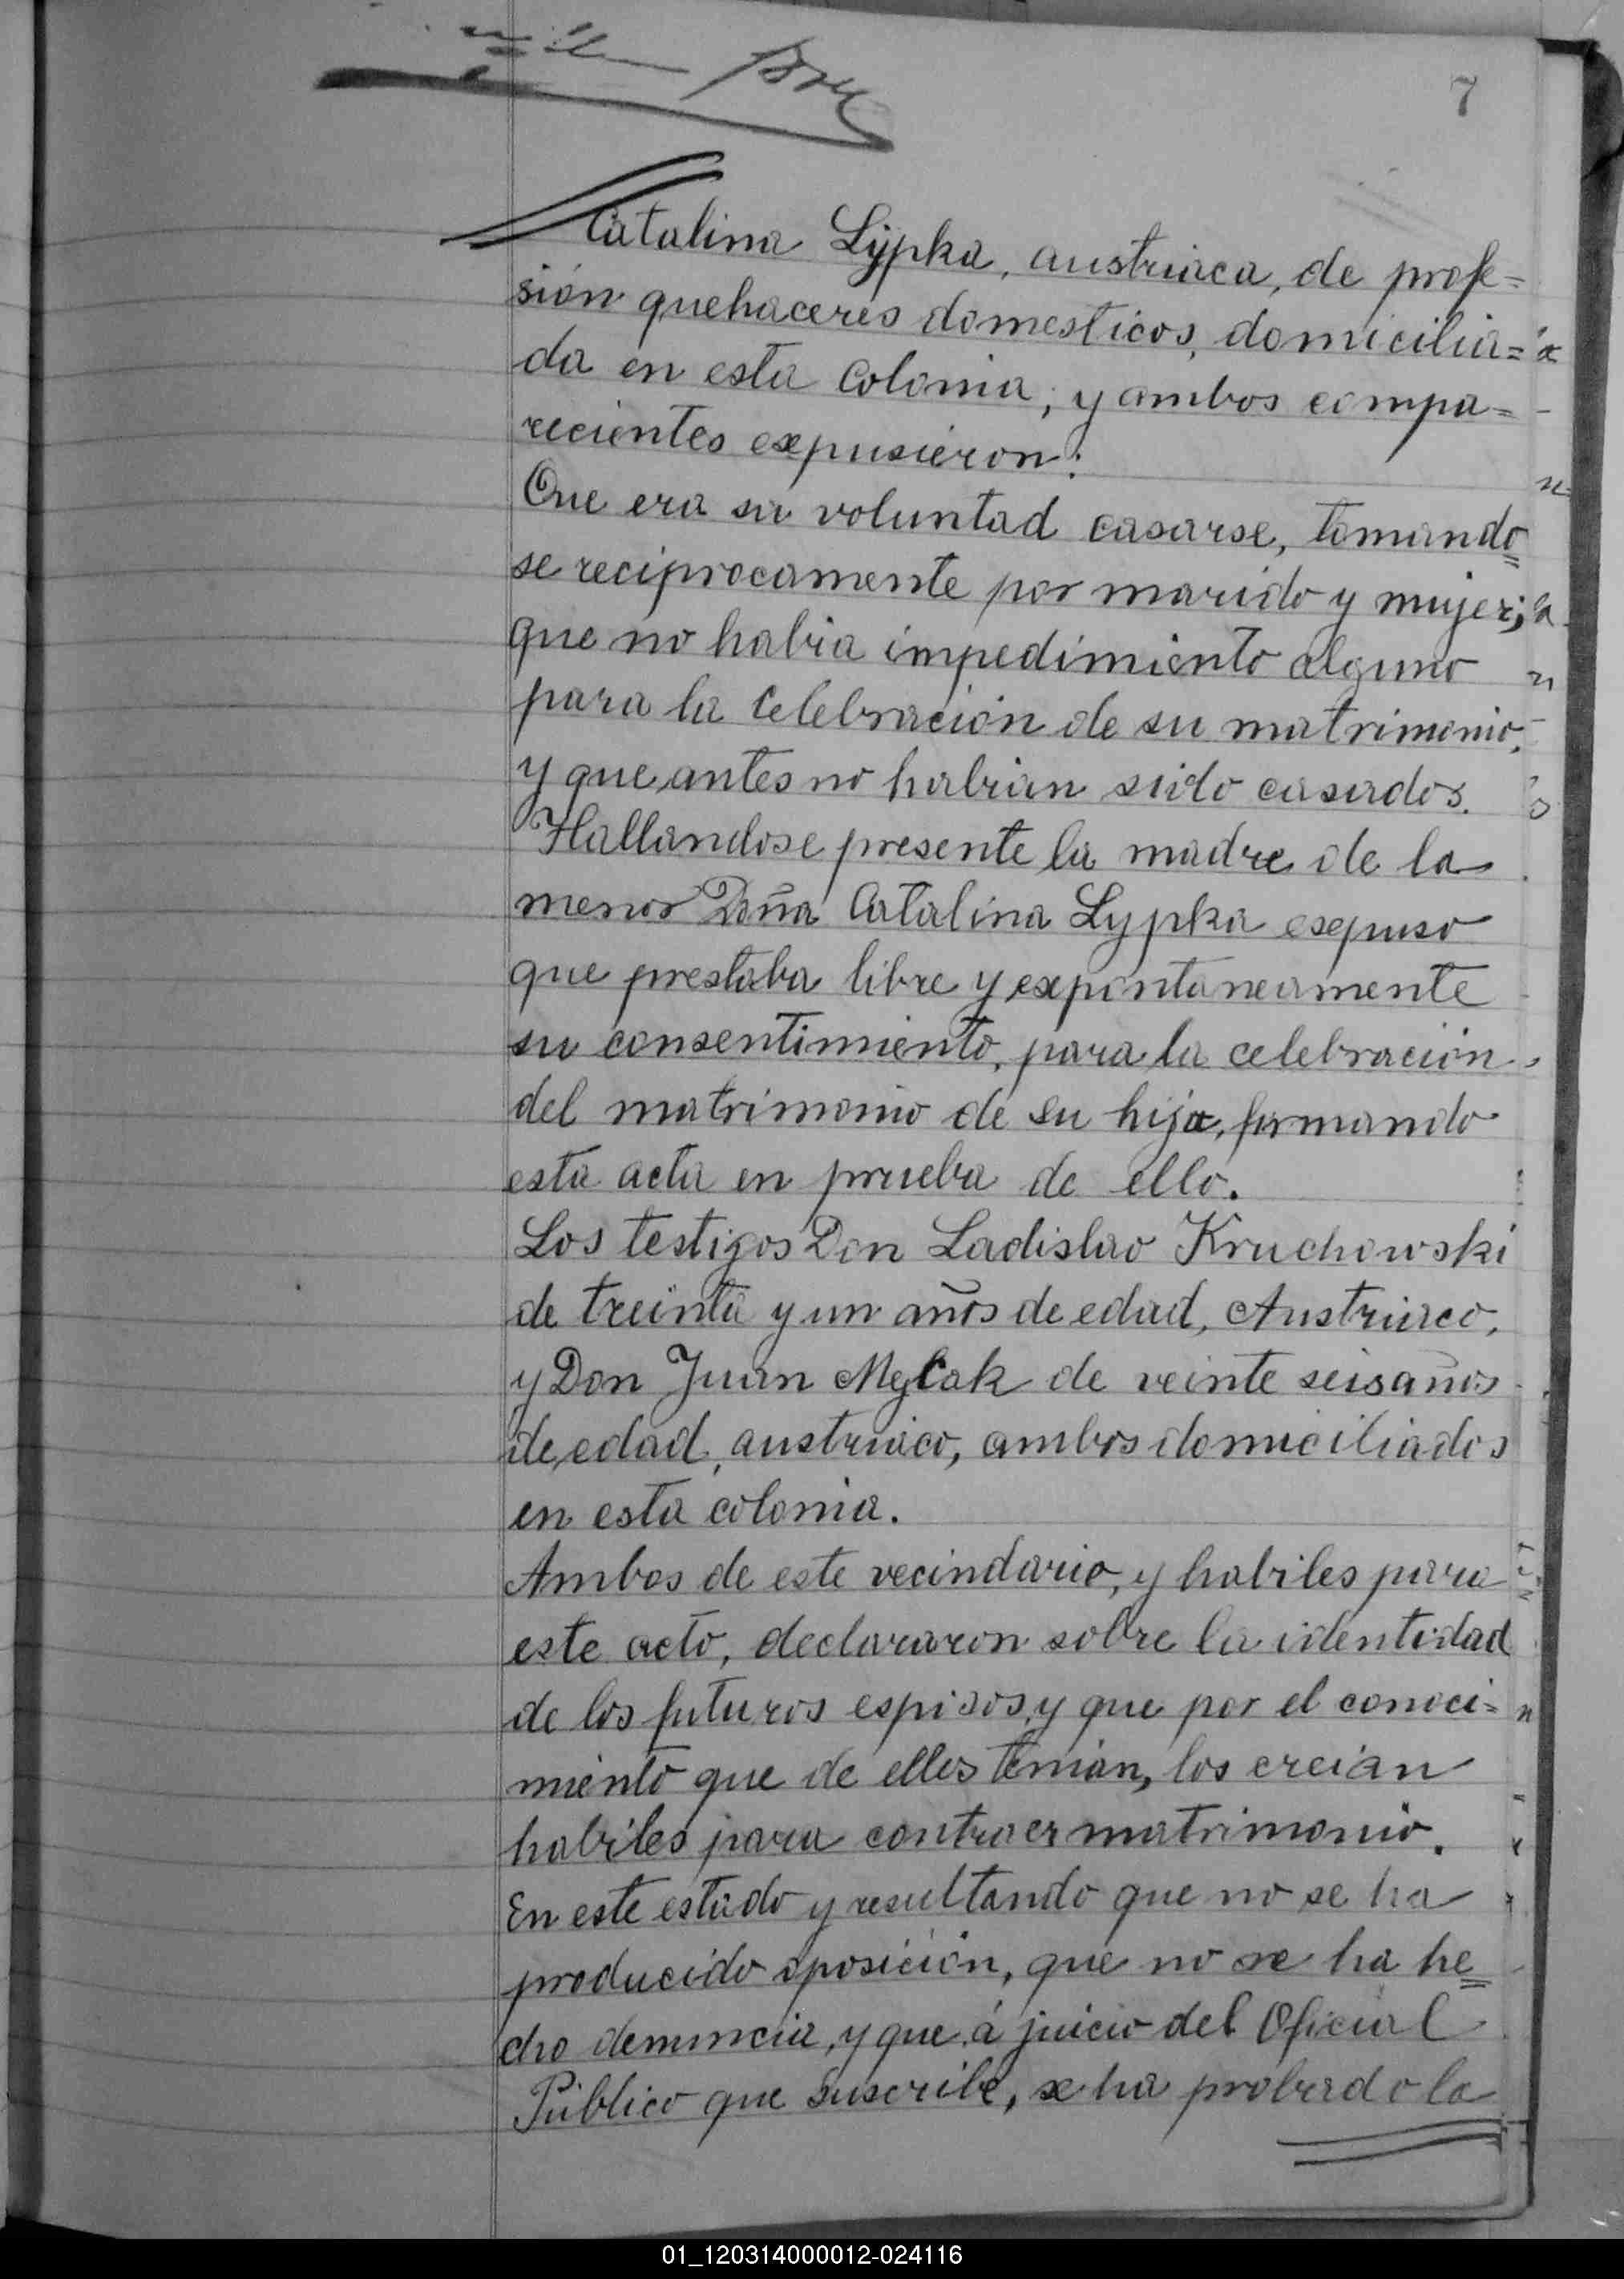 7
Catalina Lypka, austriaca, de profe=
sión quehaceres domesticos, domicilia=
da en esta Colonia; y ambos compa=
recientes expusieron:
Que era su voluntad casarse, tomando=
se reciprocamente por marido y mujer;
que no habia impedimiento alguno
para la Celebración de su matrimonio,
y que antes no habian sido casados.
Hallandose presente la madre de la
menor Doña Catalina Lypka expuso
que prestaba libre y expontaneamente
su consentimiento, para la celebración
del matrimonio de su hija, firmando
esta acta en prueba de ello.
Los testigos Don Ladislao Kruchowski
de treinta y un años de edad, Austriaco,
y Don Juan Melcak de veinte seis años
de edad, austriaco, ambos domiciliados
en esta colonia.
Ambos de este vecindario, y habiles para
este acto, declararon sobre la identidad
de los futuros esposos, y que por el conoci=
miento que de ellos tenian, los creian
habiles para contraer matrimonio.
En este estado y resultando que no se ha
producido oposición, que no se ha he=
cho denuncia, y que á juicio del Oficial
Público que suscribe, se ha probado la
01_120314000012-024116